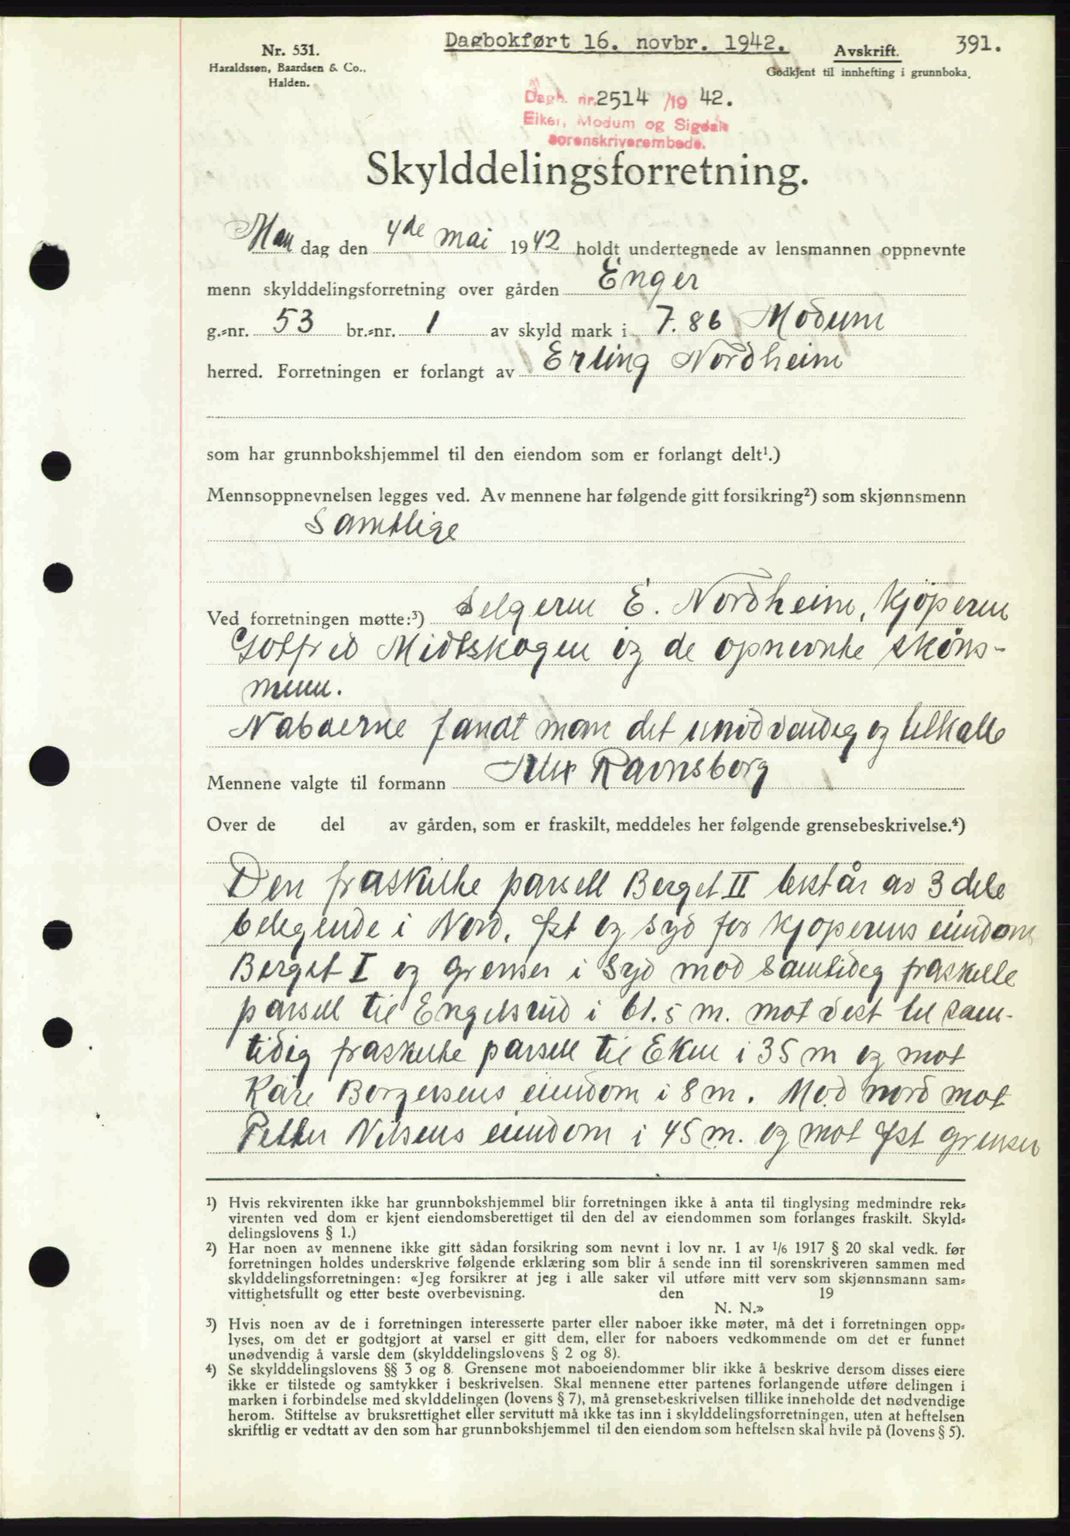 Dagbokført 16. novbr. 1942.
391.
Nr. 531.
Haraldssøn, Baardsen & Co.,
Halden.
Avskrift.
Godkjent til innhefting i grunnboka.
Dagb. nr. 2514 /19 42.
Eiker, Modum og Sigdals
sorenskriverembede.
Skylddelingsforretning.
Man dag den 4de mai 1942 holdt undertegnede av lensmannen oppnevnte
menn skylddelingsforretning over gården Enger
g.-nr. 53 br.-nr. 1 av skyld mark i 7.86 Modum
herred. Forretningen er forlangt av Erling Nordheim
som har grunnbokshjemmel til den eiendom som er forlangt delt¹.)
Mennsoppnevnelsen legges ved. Av mennene har følgende gitt forsikring²) som skjønnsmenn
Samtlige
Ved forretningen møtte:³) Selgeren E. Nordheim, kjøperen
Gotfred Midtskogen og de opnevnte skøns-
menn.
Naboerne fandt man det unødvendig og tilkalle
Mennene valgte til formann Ravnsborg
Over de del av gården, som er fraskilt, meddeles her følgende grensebeskrivelse.⁴)
Den fraskilte parsell Berget II består av 3 dele
belegende i Nord, Øst og Syd for kjøperens eiendom
Berget I og grenser i Syd mod samtideg fraskilte
parsell til Engelsrud i 61.5 m. mot vest til sam-
tidig fraskilte parsell til Eken i 35 m og mot
Kåre Borgersens eiendom i 8 m. Mod nord mot
Petter Nilsens eiendom i 45 m. og mot Øst grenser
¹) Hvis rekvirenten ikke har grunnbokshjemmel blir forretningen ikke å anta til tinglysing medmindre rek-
virenten ved dom er kjent eiendomsberettiget til den del av eiendommen som forlanges fraskilt. Skyld-
delingslovens § 1.)
²) Har noen av mennene ikke gitt sådan forsikring som nevnt i lov nr. 1 av 1/6 1917 § 20 skal vedk. før
forretningen holdes underskrive følgende erklæring som blir å sende inn til sorenskriveren sammen med
skylddelingsforretningen: «Jeg forsikrer at jeg i alle saker vil utføre mitt verv som skjønnsmann sam-
vittighetsfullt og etter beste overbevisning. den 19
N. N.»
³) Hvis noen av de i forretningen interesserte parter eller naboer ikke møter, må det i forretningen opp-
lyses, om det er godtgjort at varsel er gitt dem, eller for naboers vedkommende om det er funnet
unødvendig å varsle dem (skylddelingslovens § 2 og 8).
⁴) Se skylddelingslovens §§ 3 og 8. Grensene mot naboeiendommer blir ikke å beskrive dersom disses eiere
ikke er tilstede og samtykker i beskrivelsen. Skal mennene etter partenes forlangende utføre delingen i
marken i forbindelse med skylddelingen (lovens § 7), må grensebeskrivelsen tillike inneholde det nødvendige
herom. Stiftelse av bruksrettighet eller servitutt må ikke tas inn i skylddelingsforretningen, uten at heftelsen
skriftlig er vedtatt av den som har grunnbokshjemmel til den eiendom som heftelsen skal hvile på (lovens § 5).